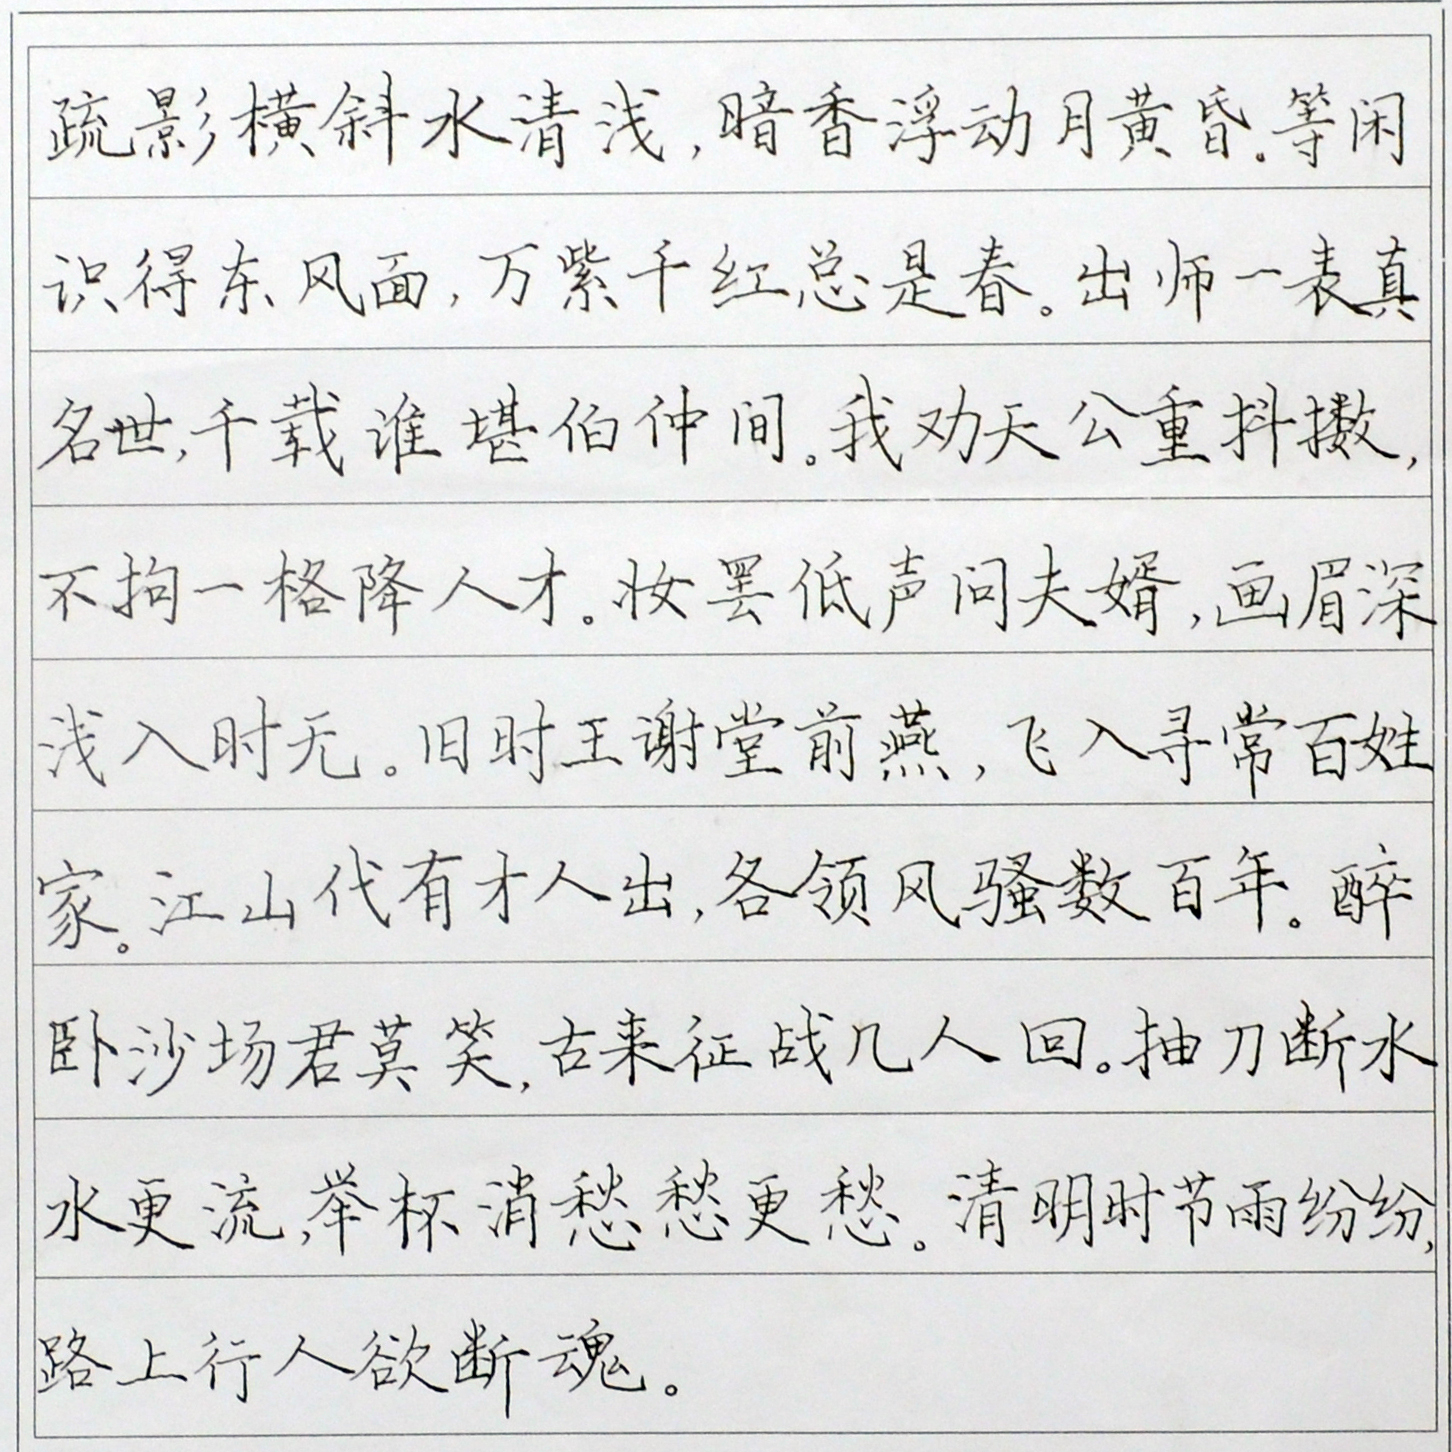 疏影横斜水清浅,暗香浮动月黄昏。等闲
识得东风面,万紫千红总是春。出师一表真
名世,千载谁堪伯仲间。我劝天公重抖擞,
不拘一格降人才。妆罢低声问夫婿,画眉深
浅入时无。旧时王谢堂前燕,飞入寻常百姓
家。江山代有才人出,各领风骚数百年。醉
卧沙场君莫笑,古来征战几人回。抽刀断水
水更流,举杯消愁愁更愁。清明时节雨纷纷,
路上行人欲断魂。